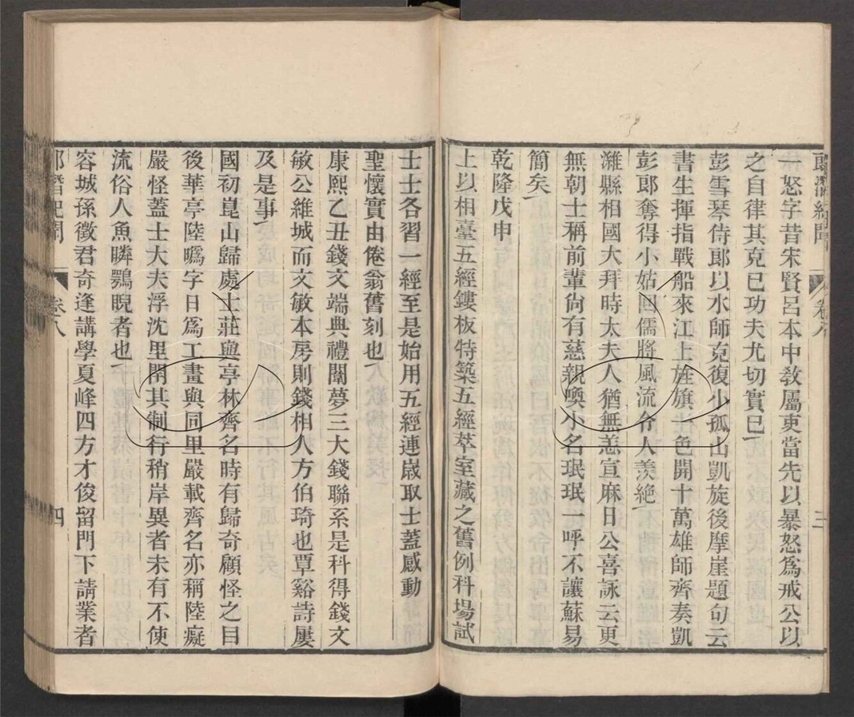 郎潛紀聞 卷八 三
一怒字昔朱賢呂本中敎屬吏當先以暴怒爲戒公以
之自律其克己功夫尤切實已
彭雪琴侍郎以水師克復小孤山凱旋後摩崖題句云
書生揮指戰船來江上旌旗十色開十萬雄師齊奏凱
彭郎奪得小姑回儒將風流令人羨絶
濰縣相國大拜時太夫人猶無恙宣麻日公喜詠云更
無朝士稱前輩尙有慈親喚小名珉珉一呼不讓蘇易
簡矣
乾隆戊申
上以相臺五經鏤板特築五經萃室藏之舊例科場試
士士各習一經至是始用五經連歲取士蓋感動
聖懷實由倦翁舊刻也
康熙乙丑錢文端典禮闈夢三大錢聯系是科得錢文
敏公維城而文敏本房則錢相人方伯琦也覃谿詩屢
及是事
國初崑山歸處士莊與亭林齊名時有歸奇顧怪之目
後華亭陸曒字日爲工畫與同里嚴載齊名亦稱陸癡
嚴怪蓋士大夫浮沈里閈其制行稍岸異者未有不使
流俗人魚瞵鶚睨者也
容城孫徵君奇逢講學夏峰四方才俊留門下請業者
郎潛紀聞 卷八 四